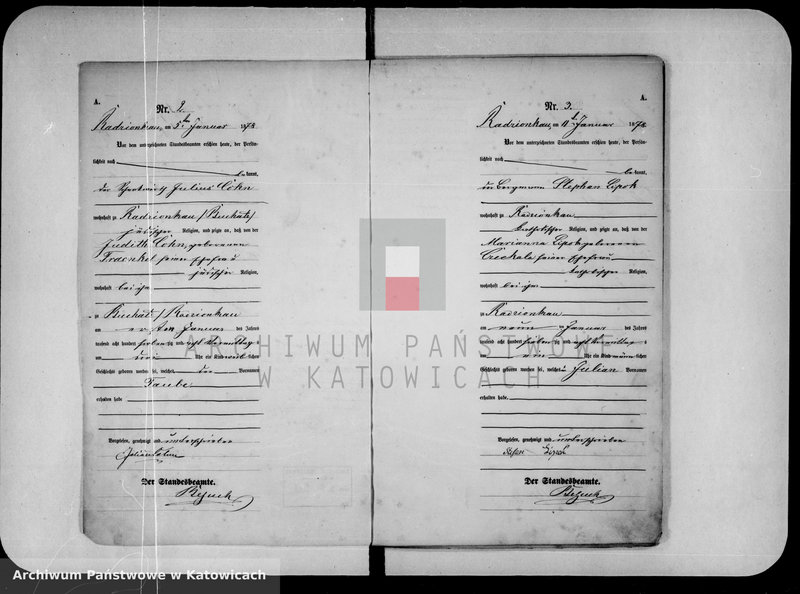 A.
Nr. 2.
Radzionkau, am 5ten Januar 1878
Vor dem unterzeichneten Standesbeamten erschien heute, der Persön-
lichkeit nach
bekannt,
der Julius Cohn
wohnhaft zu Radzionkau /Buchatz/
jüdischer Religion, und zeigte an, daß von der
Judith Cohn, geborenen
Fraenkel seiner Ehefrau
jüdischer Religion,
wohnhaft bei ihm
zu Buchatz / Radzionkau
am Januar des Jahres
tausend acht hundert siebenzig und acht Vormittags
um drei Uhr ein Kind weiblichen
Geschlechts geboren worden sei, welches den Vornamen
Taube
erhalten habe
Vorgelesen, genehmigt und unterschrieben
Der Standesbeamte.
A.
Nr. 3.
Radzionkau, am 11ten Januar 1878
Vor dem unterzeichneten Standesbeamten erschien heute, der Persön-
lichkeit nach
bekannt,
der Bergmann Stephan Cipok
wohnhaft zu Radzionkau
katholischer Religion, und zeigte an, daß von der
Marianna Cipok geborenen
seiner Ehefrau
katholischer Religion,
wohnhaft bei ihm
zu Radzionkau
am neun Januar des Jahres
tausend acht hundert siebenzig und acht Vormittags
um ein Uhr ein Kind männlichen
Geschlechts geboren worden sei, welches Julian Vornamen
erhalten habe.
Vorgelesen, genehmigt und unterschrieben
Der Standesbeamte.
ARCHIWUM PAŃSTWOWE
W KATOWICACH
Archiwum Państwowe w Katowicach